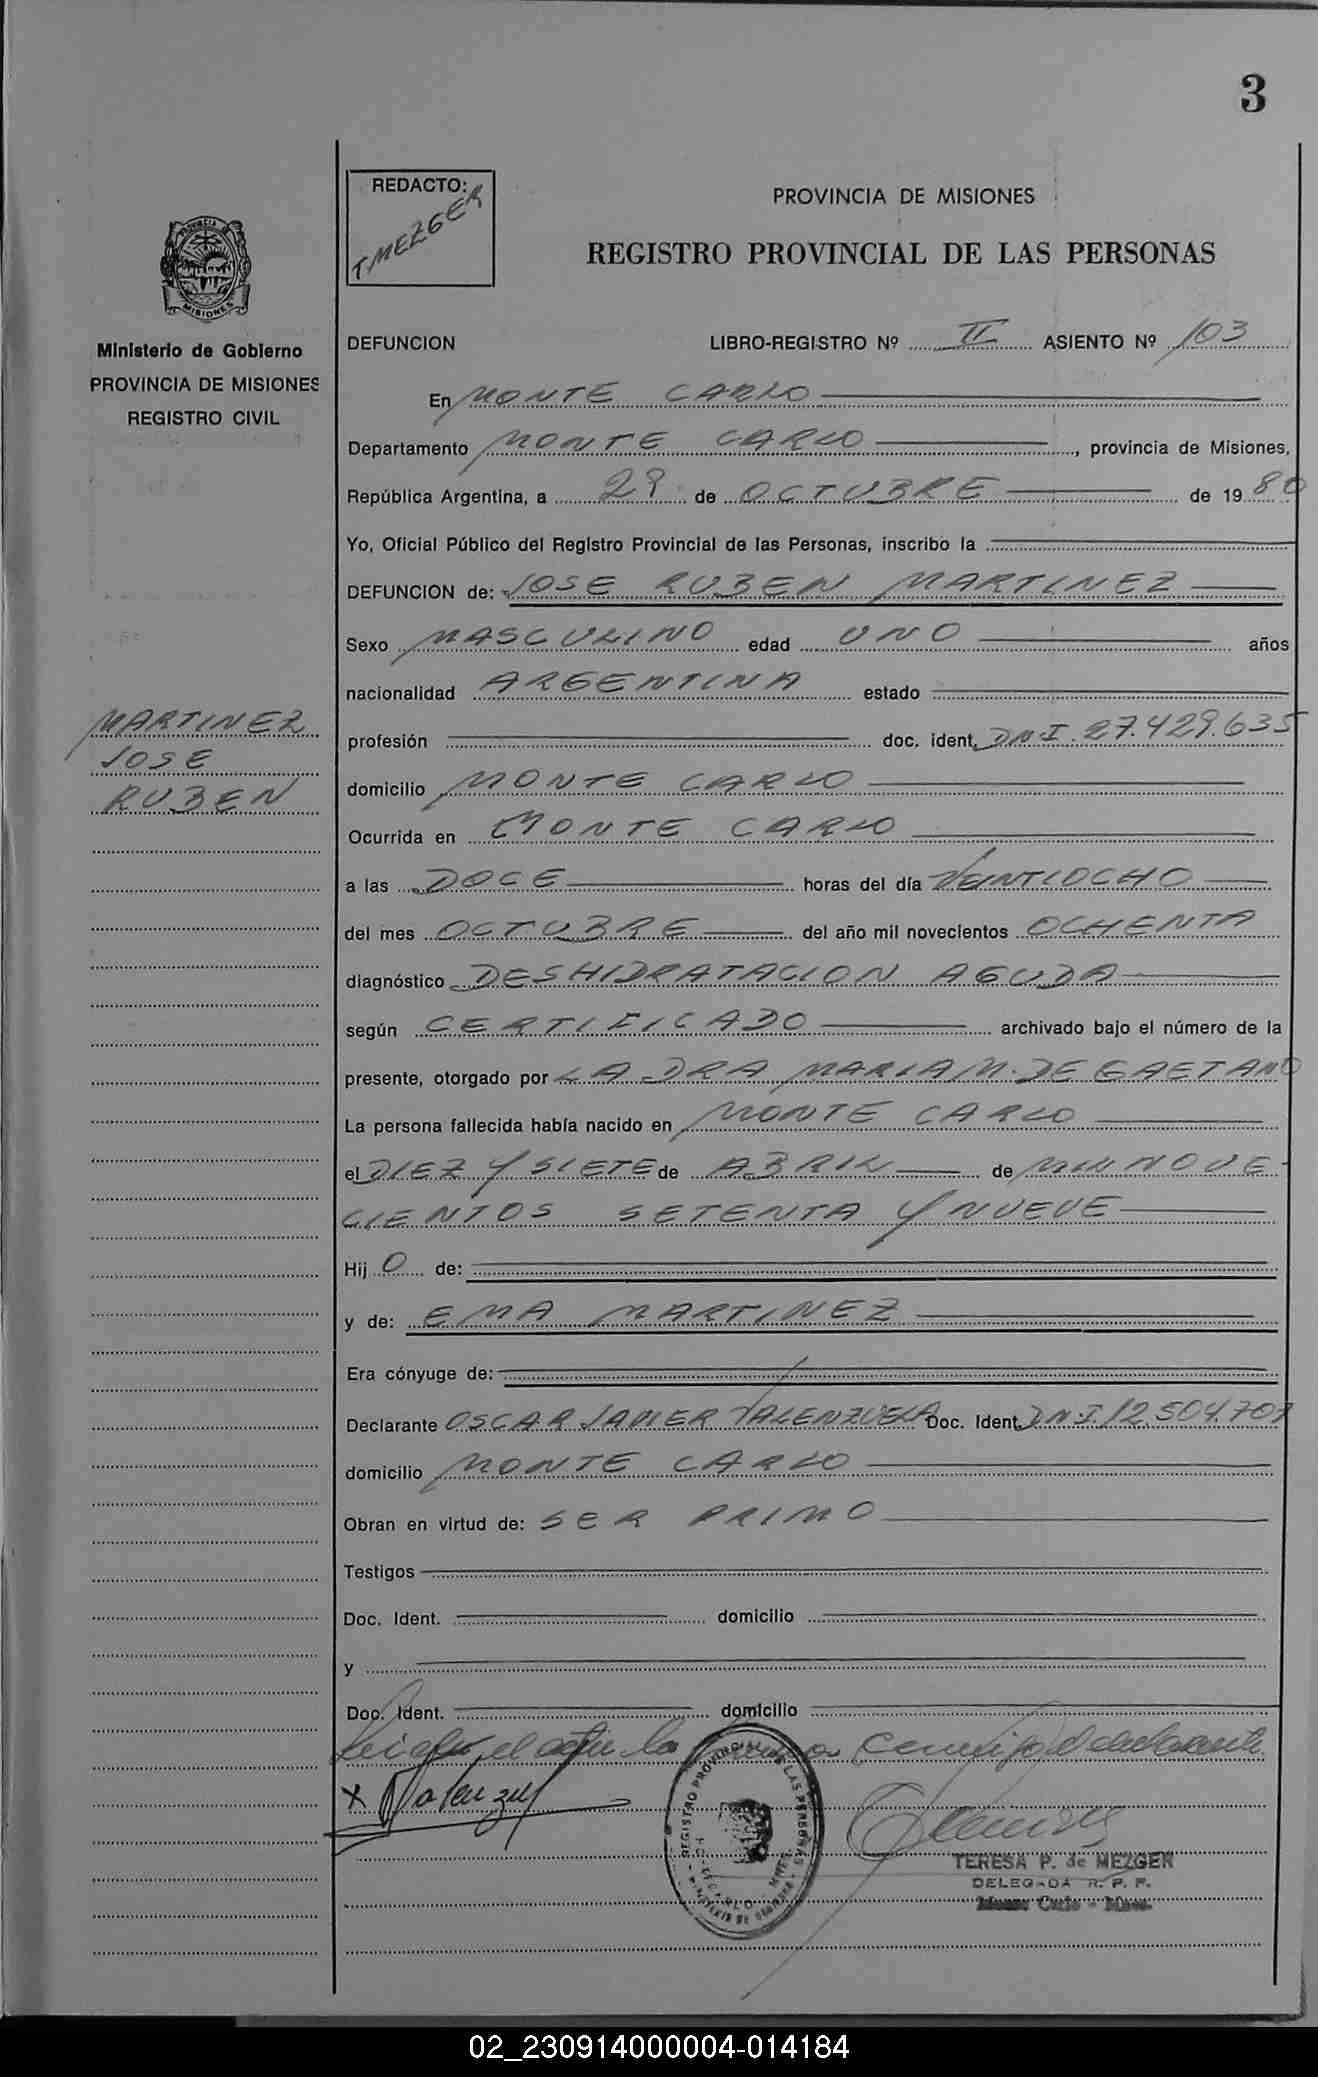 3
REDACTO:
T. MEZGER
PROVINCIA DE MISIONES
REGISTRO PROVINCIAL DE LAS PERSONAS
Ministerio de Gobierno
PROVINCIA DE MISIONES
REGISTRO CIVIL
DEFUNCION LIBRO-REGISTRO Nº II ASIENTO Nº 103
En MONTE CARLO
Departamento MONTE CARLO, provincia de Misiones,
República Argentina, a 29 de OCTUBRE de 1980
Yo, Oficial Público del Registro Provincial de las Personas, inscribo la
DEFUNCION de: JOSE RUBEN MARTINEZ
Sexo MASCULINO edad UNO años
nacionalidad ARGENTINA estado
MARTINEZ
JOSE
RUBEN
profesión doc. ident. DNI. 27.429.635
domicilio MONTE CARLO
Ocurrida en MONTE CARLO
a las DOCE horas del día VEINTIOCHO
del mes OCTUBRE del año mil novecientos OCHENTA
diagnóstico DESHIDRATACION AGUDA
según CERTIFICADO archivado bajo el número de la
presente, otorgado por LA DRA MARIA M. DE GAETANO
La persona fallecida había nacido en MONTE CARLO
el DIEZ Y SIETE de ABRIL de MIL NOVE-
CIENTOS SETENTA Y NUEVE
Hij O de:
y de: EMA MARTINEZ
Era cónyuge de:
Declarante OSCAR JAVIER VALENZUELA Doc. Ident. DNI. 12.504.707
domicilio MONTE CARLO
Obran en virtud de: SER PRIMO
Testigos
Doc. Ident. domicilio
y
Doc. Ident. domicilio
Leida el acta la conmigo el declarante
X Valenzuel
REGISTRO PROVINCIAL DE LAS PERSONAS
TERESA P. de MEZGER
DELEGADA R. P. P.
Monte Carlo - Mnes.
02_230914000004-014184